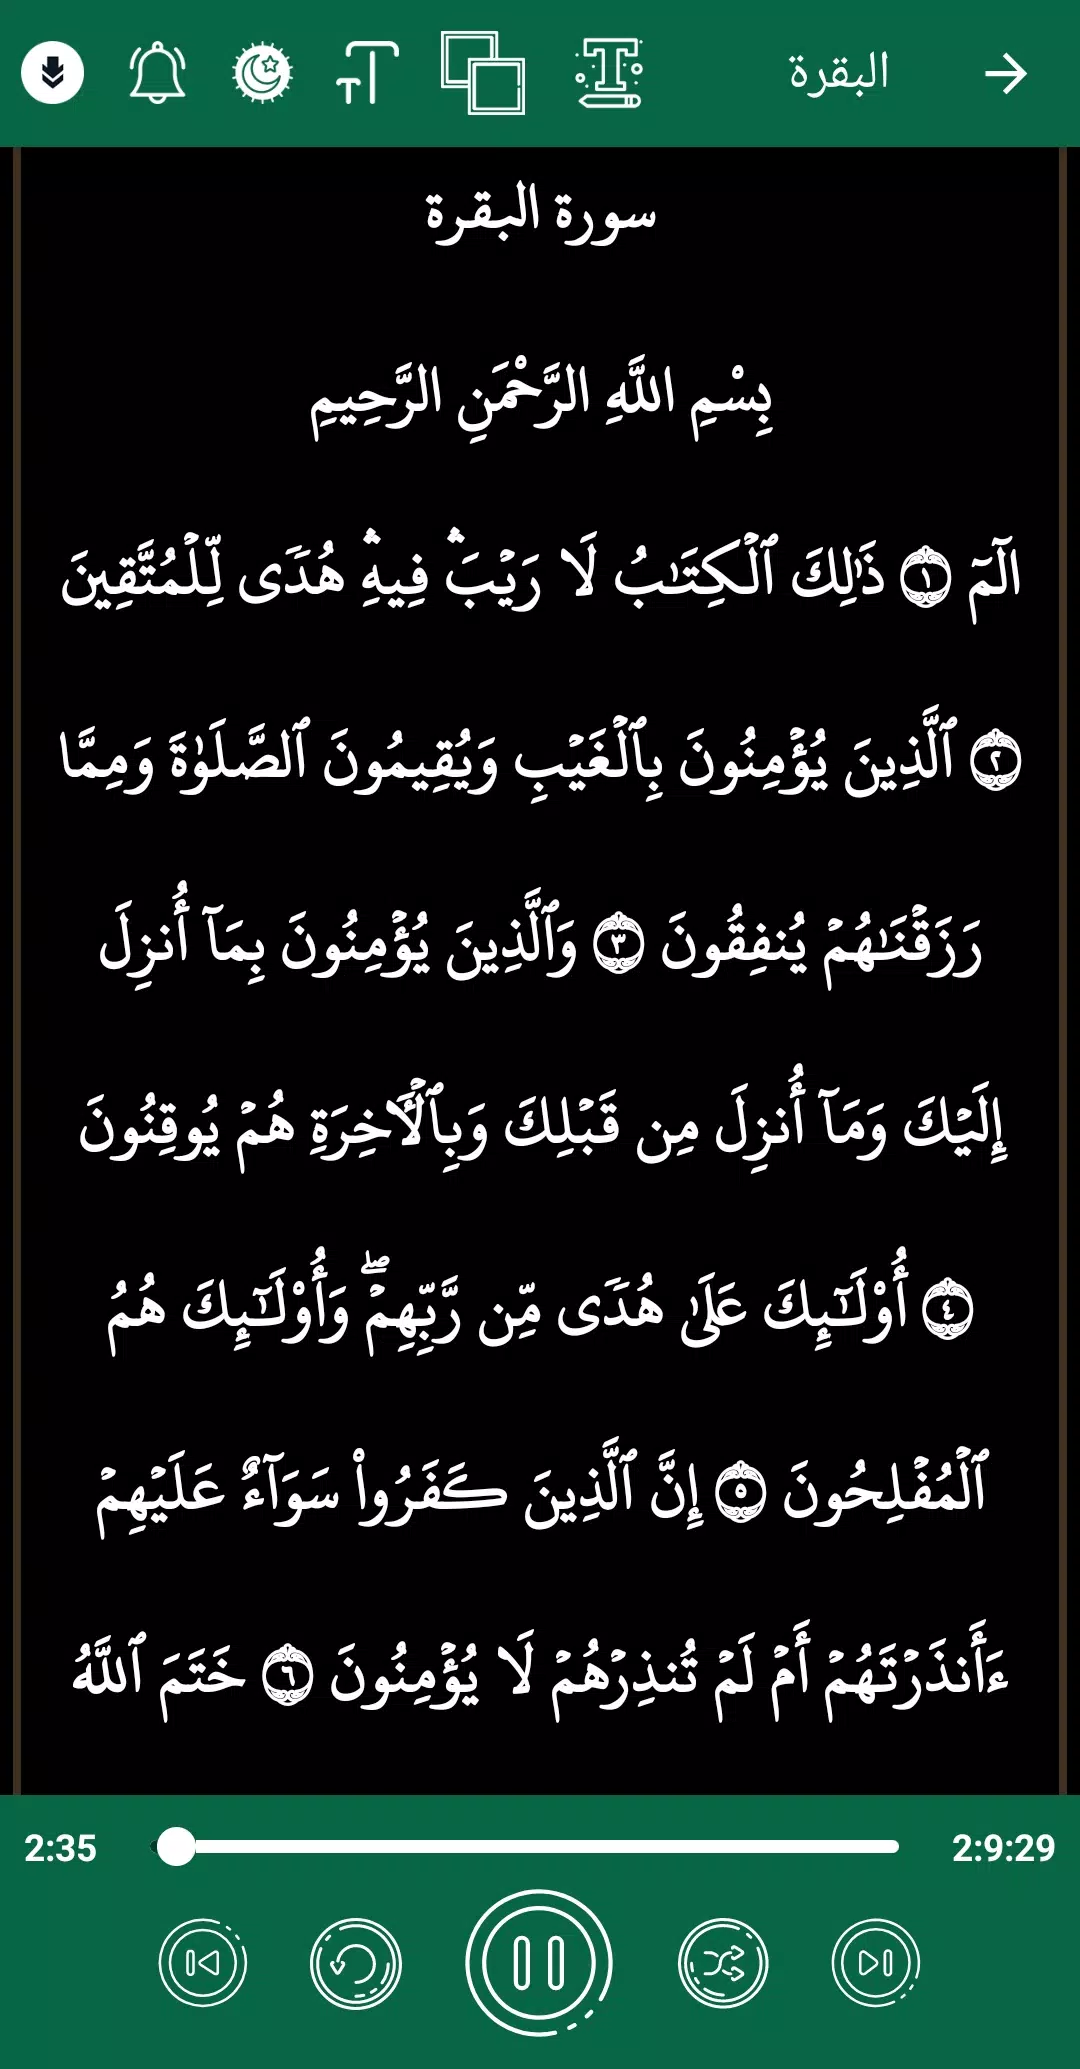 البقرة
سورة البقرة
بِسْمِ اللَّهِ الرَّحْمَنِ الرَّحِيمِ
الٓمٓ ١ ذَٰلِكَ ٱلْكِتَٰبُ لَا رَيْبَ ۛ فِيهِ ۛ هُدًى لِّلْمُتَّقِينَ
٢ ٱلَّذِينَ يُؤْمِنُونَ بِٱلْغَيْبِ وَيُقِيمُونَ ٱلصَّلَوٰةَ وَمِمَّا
رَزَقْنَٰهُمْ يُنفِقُونَ ٣ وَٱلَّذِينَ يُؤْمِنُونَ بِمَآ أُنزِلَ
إِلَيْكَ وَمَآ أُنزِلَ مِن قَبْلِكَ وَبِٱلْأَخِرَةِ هُمْ يُوقِنُونَ
٤ أُوْلَٰٓئِكَ عَلَىٰ هُدًى مِّن رَّبِّهِمْ ۖ وَأُوْلَٰٓئِكَ هُمُ
ٱلْمُفْلِحُونَ ٥ إِنَّ ٱلَّذِينَ كَفَرُوا۟ سَوَآءٌ عَلَيْهِمْ
ءَأَنذَرْتَهُمْ أَمْ لَمْ تُنذِرْهُمْ لَا يُؤْمِنُونَ ٦ خَتَمَ ٱللَّهُ
2:35 2:9:29